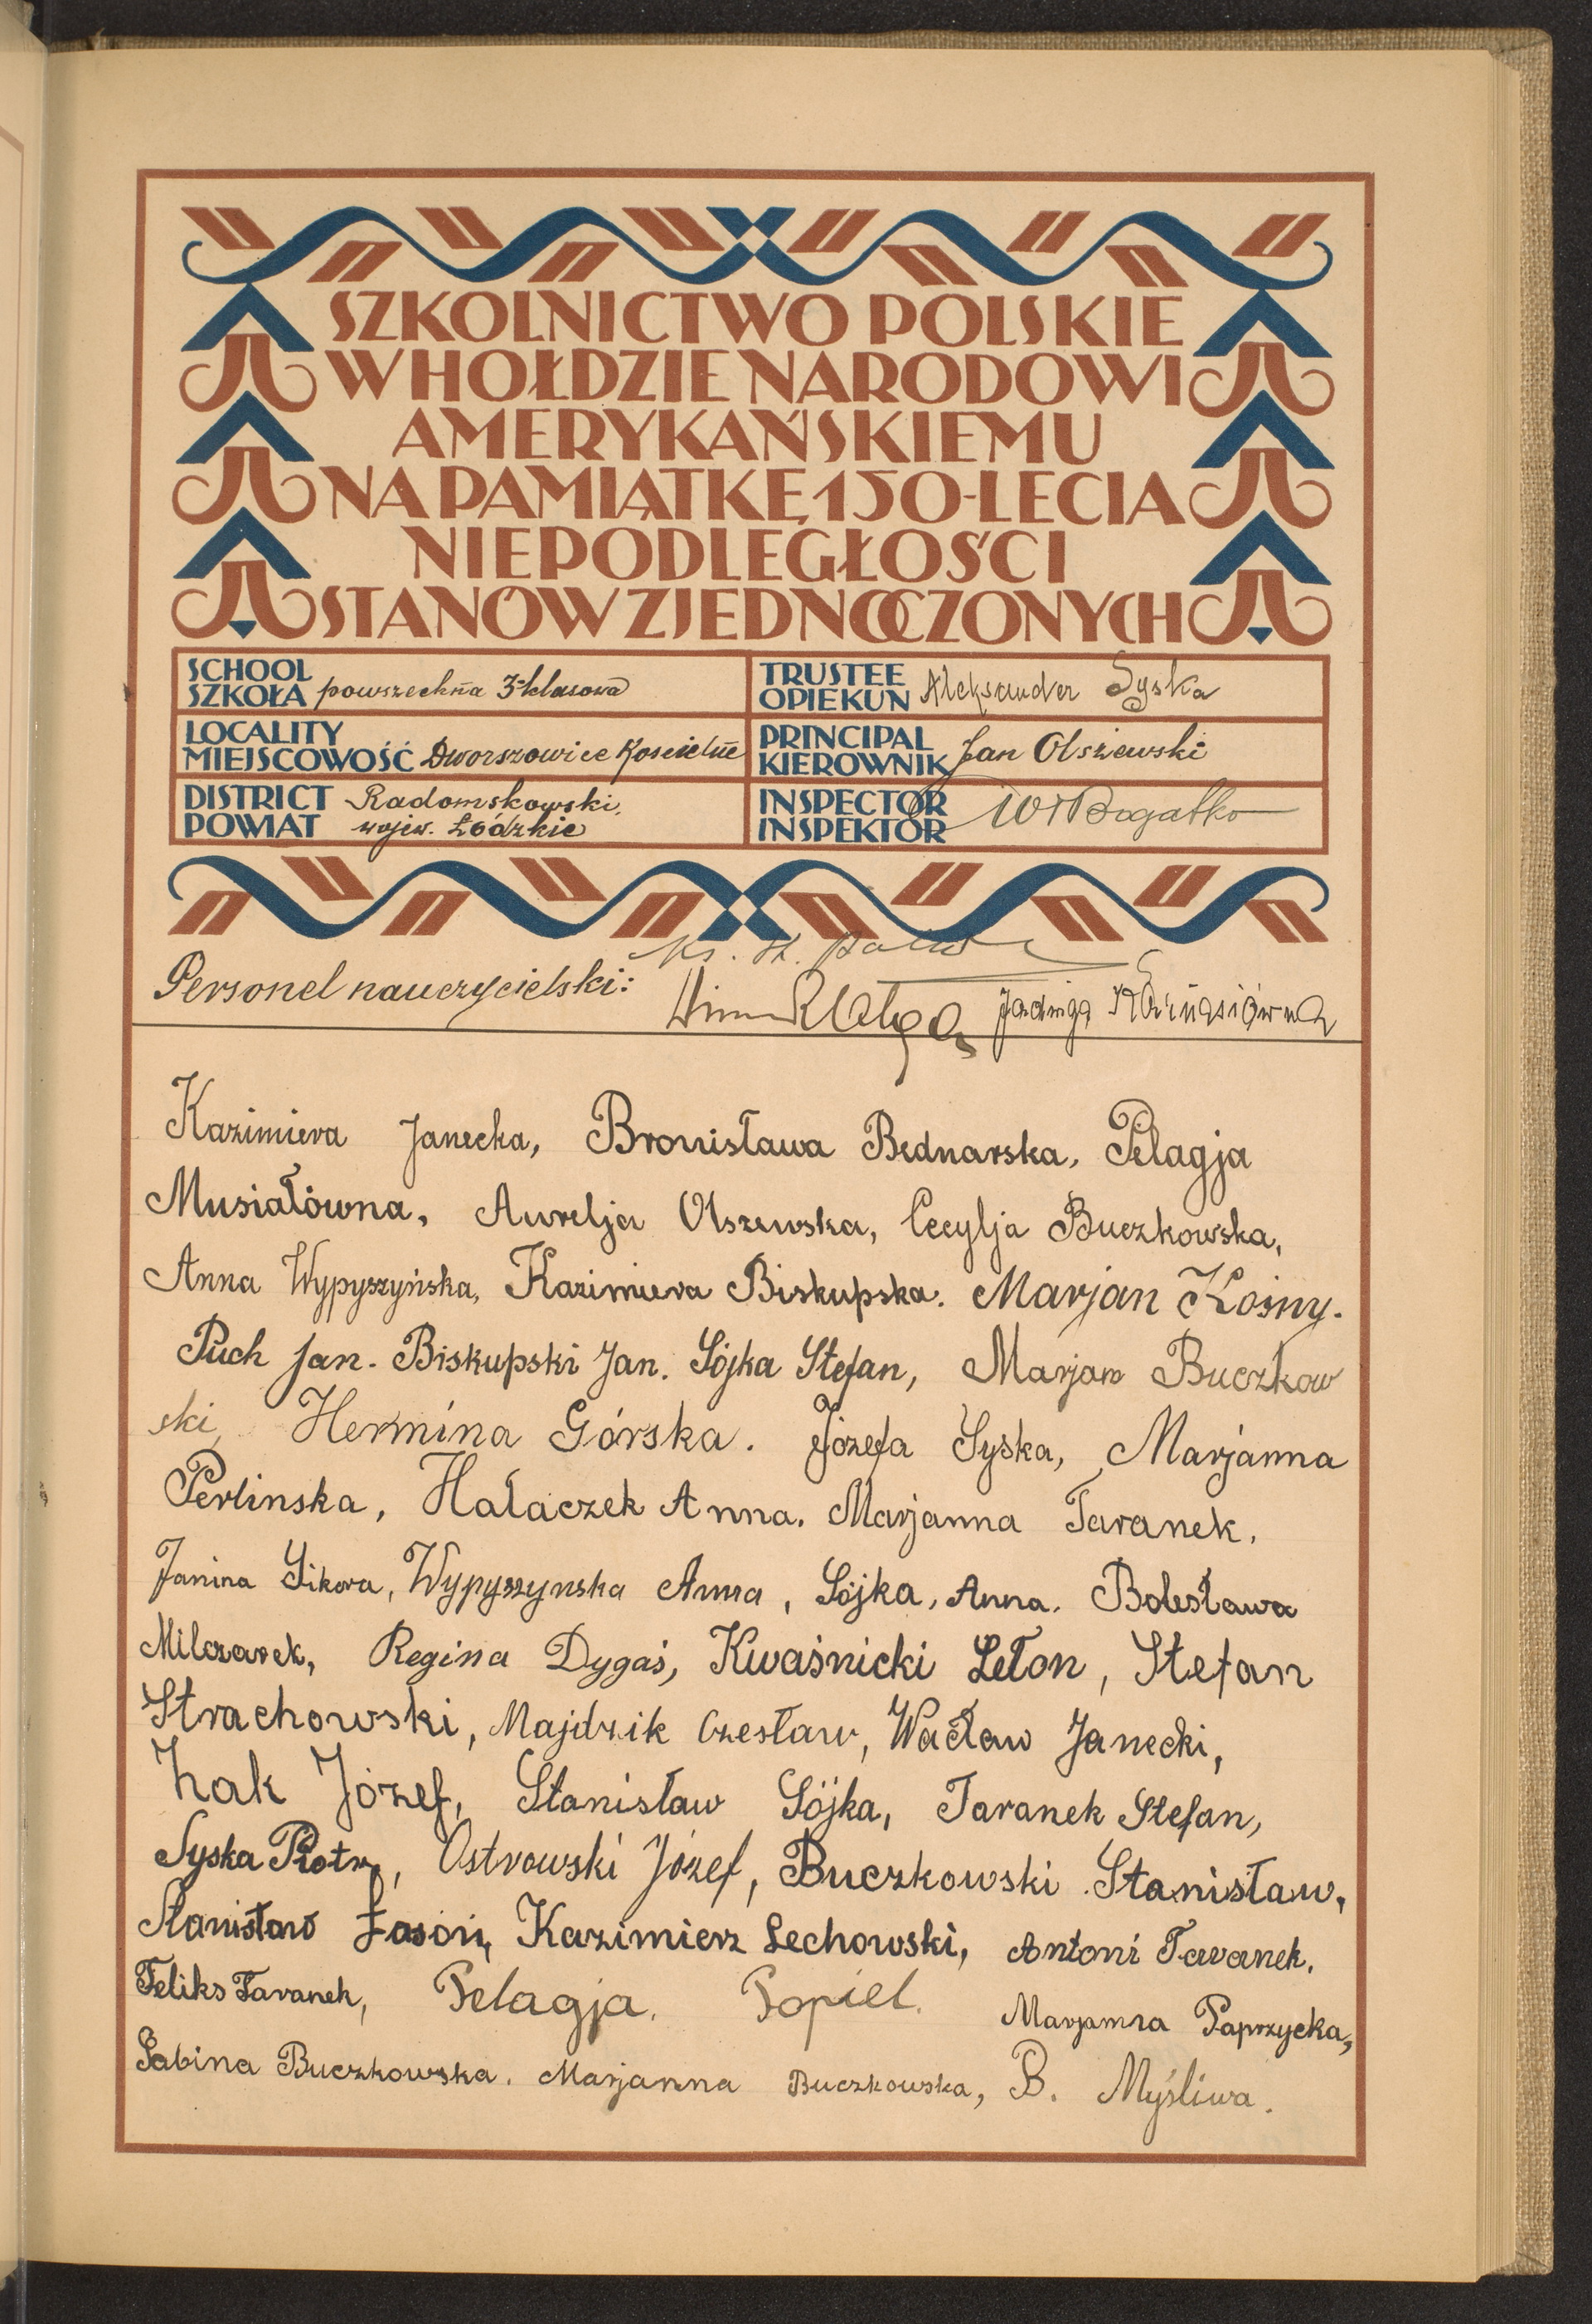 SZKOLNICTWO POLSKIE
W HOŁDZIE NARODOWI
AMERYKAŃSKIEMU
NA PAMIĄTKĘ 150-LECIA
NIEPODLEGŁOŚCI
STANÓW ZJEDNOCZONYCH
SCHOOL
SZKOŁA powszechna 3-klasowa
TRUSTEE
OPIEKUN Aleksander Syska
LOCALITY
MIEJSCOWOŚĆ Dworszowice Kościelne
PRINCIPAL
KIEROWNIK Jan Olszewski
DISTRICT Radomskowski,
POWIAT wojew. Łódzkie
INSPECTOR
INSPEKTOR Bogatko
Personel nauczycielski: Ks. Jadwiga
Kazimiera Janecka, Bronisława Bednarska, Pelagja
Musiałówna, Aurelja Olszewska, Cecylja Buczkowska,
Anna Wypyszyńska, Kazimiera Biskupska. Marjan Kośny.
Puch Jan. Biskupski Jan. Sójka Stefan, Marjan Buczkow
ski, Hermina Górska. Józefa Syska, Marjanna
Perlinska, Hałaczek Anna. Marjanna Taranek.
Janina Sikora, Wypyszynska Anna, Sójka, Anna. Bolesława
Milczarek, Regina Dygaś, Kwaśnicki Leon, Stefan
Strachowski, Majdzik Czesław, Wacław Janecki,
Żak Józef, Stanisław Sójka, Taranek Stefan,
Syska Piotr, Ostrowski Józef, Buczkowski Stanisław,
Stanisław Łasoń, Kazimierz Lechowski, Antoni Taranek.
Feliks Taranek, Pelagja. Popiel. Marjanna Paprzycka,
Sabina Buczkowska. Marjanna Buczkowska, B. Myśliwa.